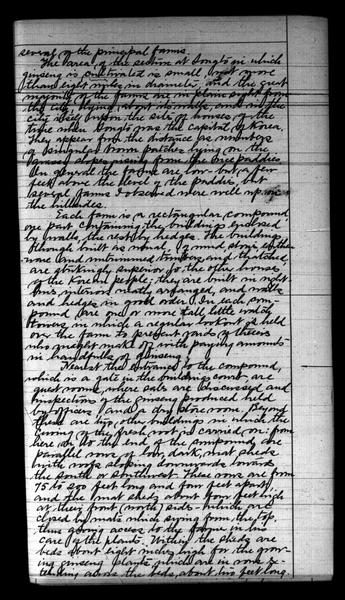 several of the principal farms.
The area of the section at Songto in which
ginseng is cultivated is small, not more
than eight miles in diameter, and the great
majority of the farms are in plain sight from
the city, lying about its walls, and in the
city itself upon the site of houses of the
time when Songto was the capital of Korea.
They appear from the distance as numbers
of singular brown patches lying on the
grassy slopes rising from the rice paddies.
In general the farms are low but a few
feet above the level of the paddies, but
several farms I observed were well up on
the hillsides.
Each farm is a rectangular compound,
one part containing the buildings enclosed
by walls, the rest by hedges. The buildings
though built as usual, of mud, stone,
and untrimmed timbers and thatched,
are strikingly superior to the other houses
of the Korean people; they are built in right
lines interiors neatly arranged, and walls
and hedges in good order. In each com-
pound are one or more tall little watch
towers in which a regular lookout is held
over the farm to prevent raids of thieves
who might make off with paying amounts
in handfuls of ginseng.
Nearest the entrance to the compound,
which is a gate in the buildings court, are
guest rooms, where sales are discussed and
inspections of the ginseng produced held
by officers, and a dry store room. Beyond
these are two other buildings in which the
curing of the fresh root is carried on; from
here on to the end of the compound, are
parallel rows of low, dark, mat sheds
with roofs sloping downwards towards
the south or southwest. These rows are from
75 to 200 feet long and four feet apart,
and the mat sheds about four feet high
at their front (north) sides which are
closed by mats which swing from the top,
thus giving access to the farmer in his
care of the plants. Within the sheds are
beds about eight inches high for the grow-
ing ginseng plants, which are in rows ex-
tending across the beds, about two feet long.